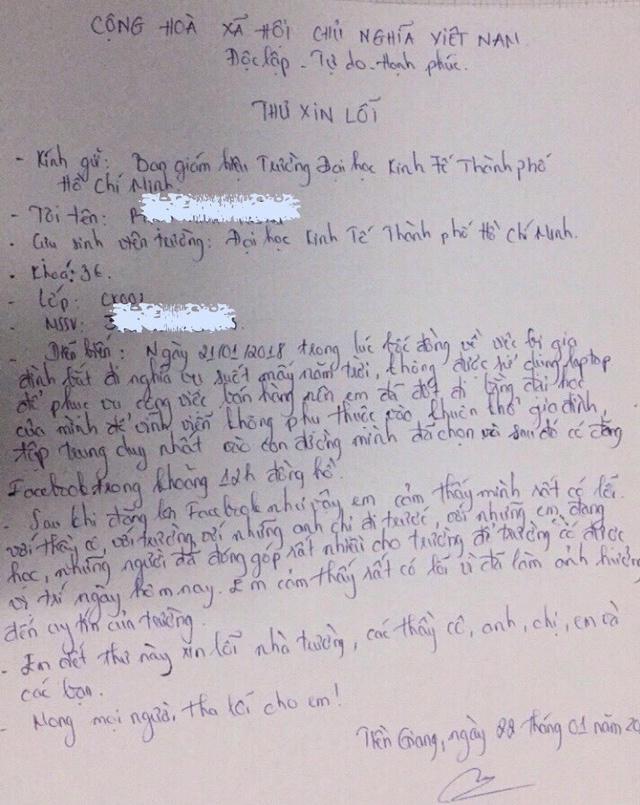 CỘNG HOÀ XÃ HỘI CHỦ NGHĨA VIỆT NAM
Độc lập - Tự do - Hạnh phúc.
THƯ XIN LỖI
- Kính gửi: Ban giám hiệu Trường Đại học Kinh Tế Thành phố
Hồ Chí Minh
- Tôi tên:
- Cựu sinh viên trường: Đại học Kinh Tế Thành phố Hồ Chí Minh.
- Khoá: 36.
- Lớp:
- MSSV:
- Diễn biến: Ngày 21/01/2018 trong lúc bốc đồng về việc bị gia
đình bắt đi nghĩa vụ suốt mấy năm trời, không được sử dụng laptop
để phục vụ công việc bán hàng nên em đã đốt đi bằng đại học
của mình để vĩnh viễn không phụ thuộc vào khuôn khổ gia đình,
tập trung duy nhất vào con đường mình đã chọn và sau đó có đăng
Facebook trong khoảng 12h đồng hồ.
- Sau khi đăng lên Facebook như vậy em cảm thấy mình rất có lỗi
với thầy cô, với trường, với những anh chị đi trước, với những em đang
học, những người đã đóng góp rất nhiều cho trường để trường có được
vị trí ngày hôm nay. Em cảm thấy rất có lỗi vì đã làm ảnh hưởng
đến uy tín của trường.
- Em viết thư này xin lỗi nhà trường, các thầy cô, anh, chị, em và
các bạn.
- Mong mọi người tha lỗi cho em!
Tiền Giang, ngày 22 tháng 01 năm 20